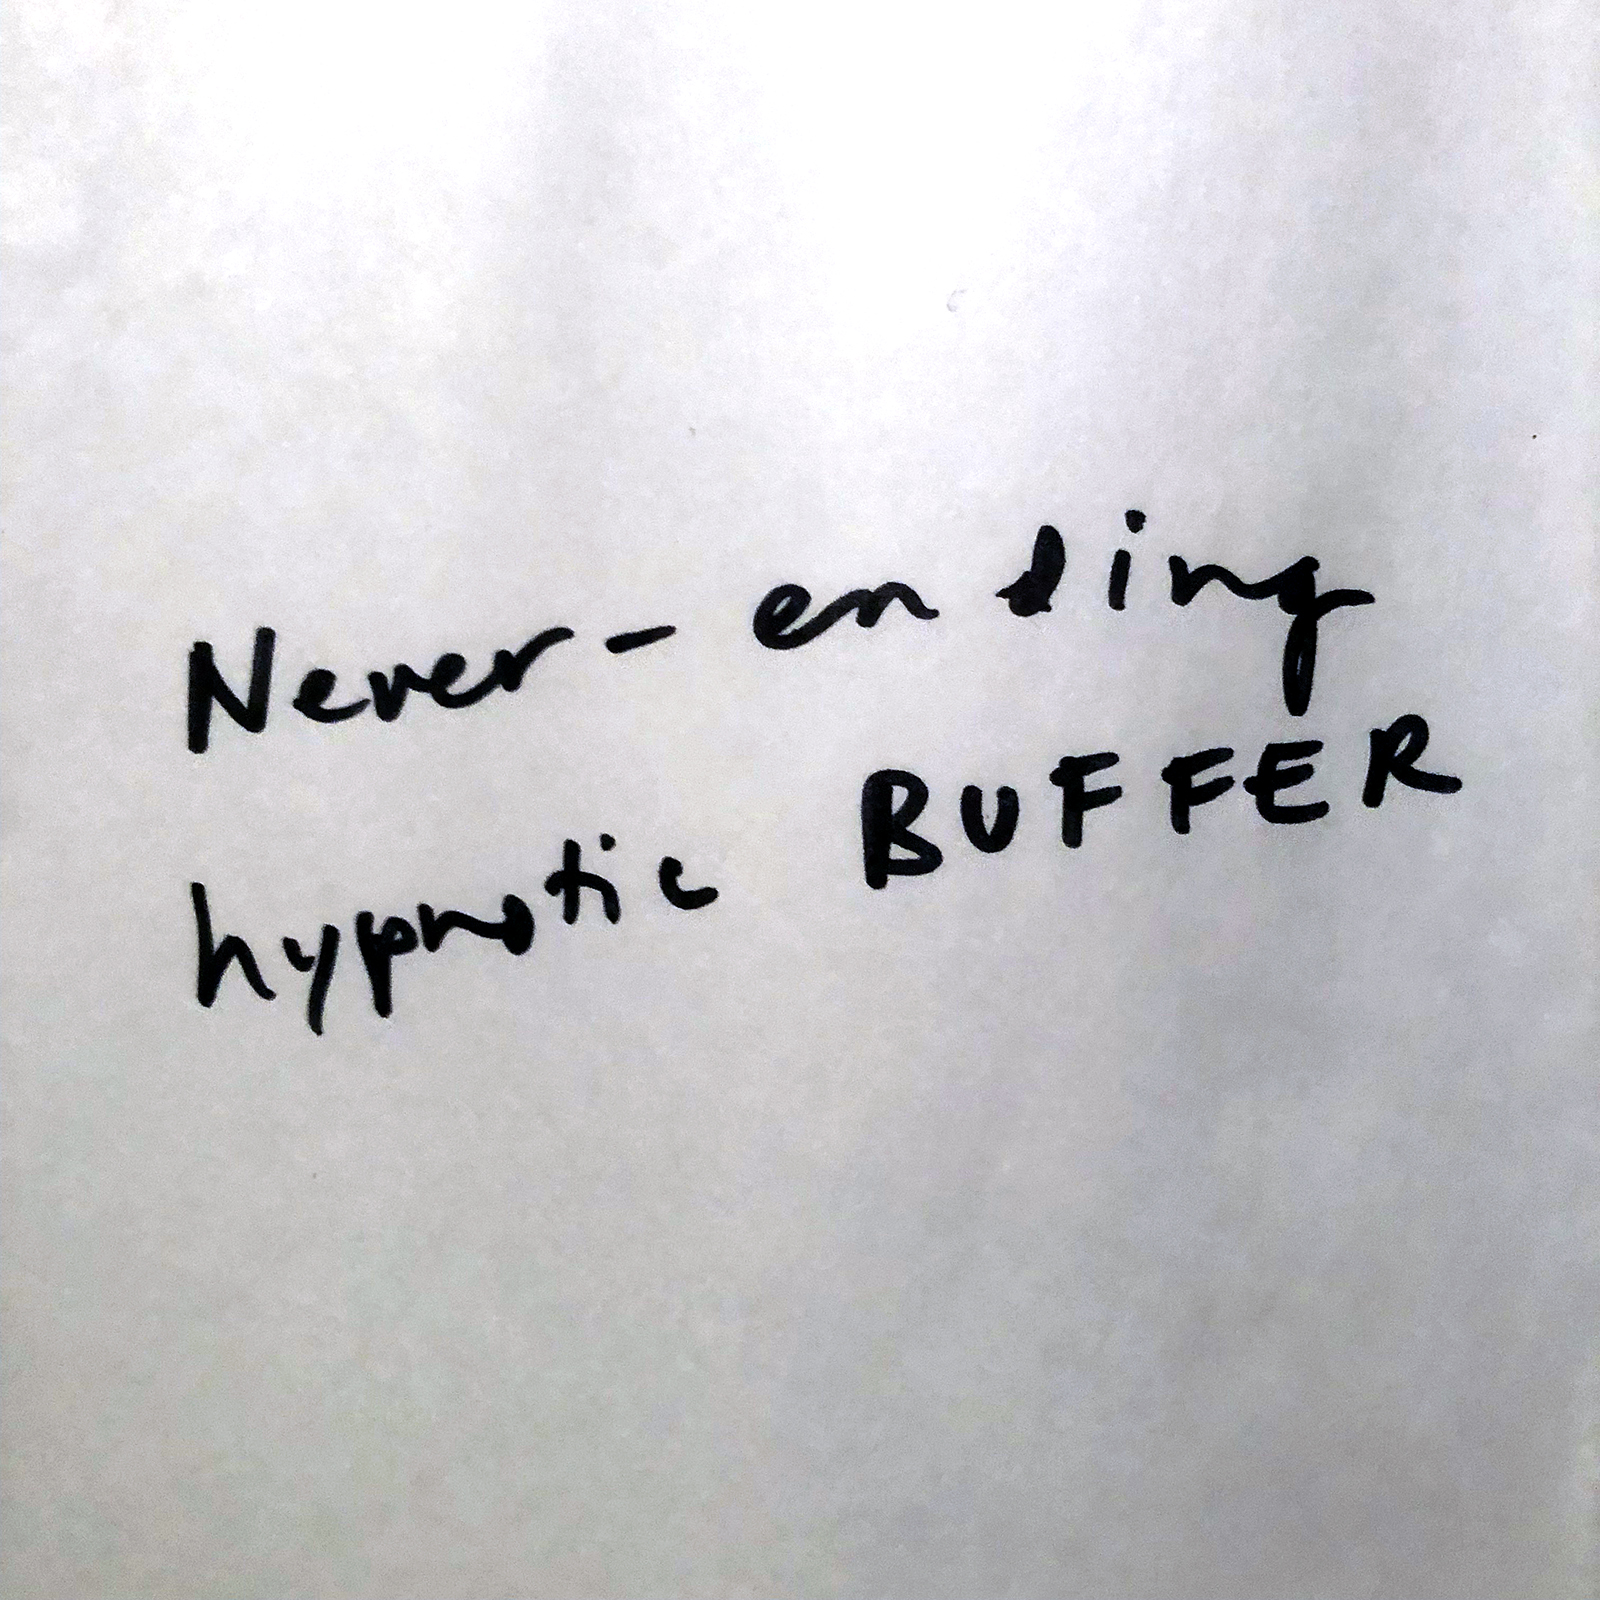 Never-ending
hypnotic BUFFER